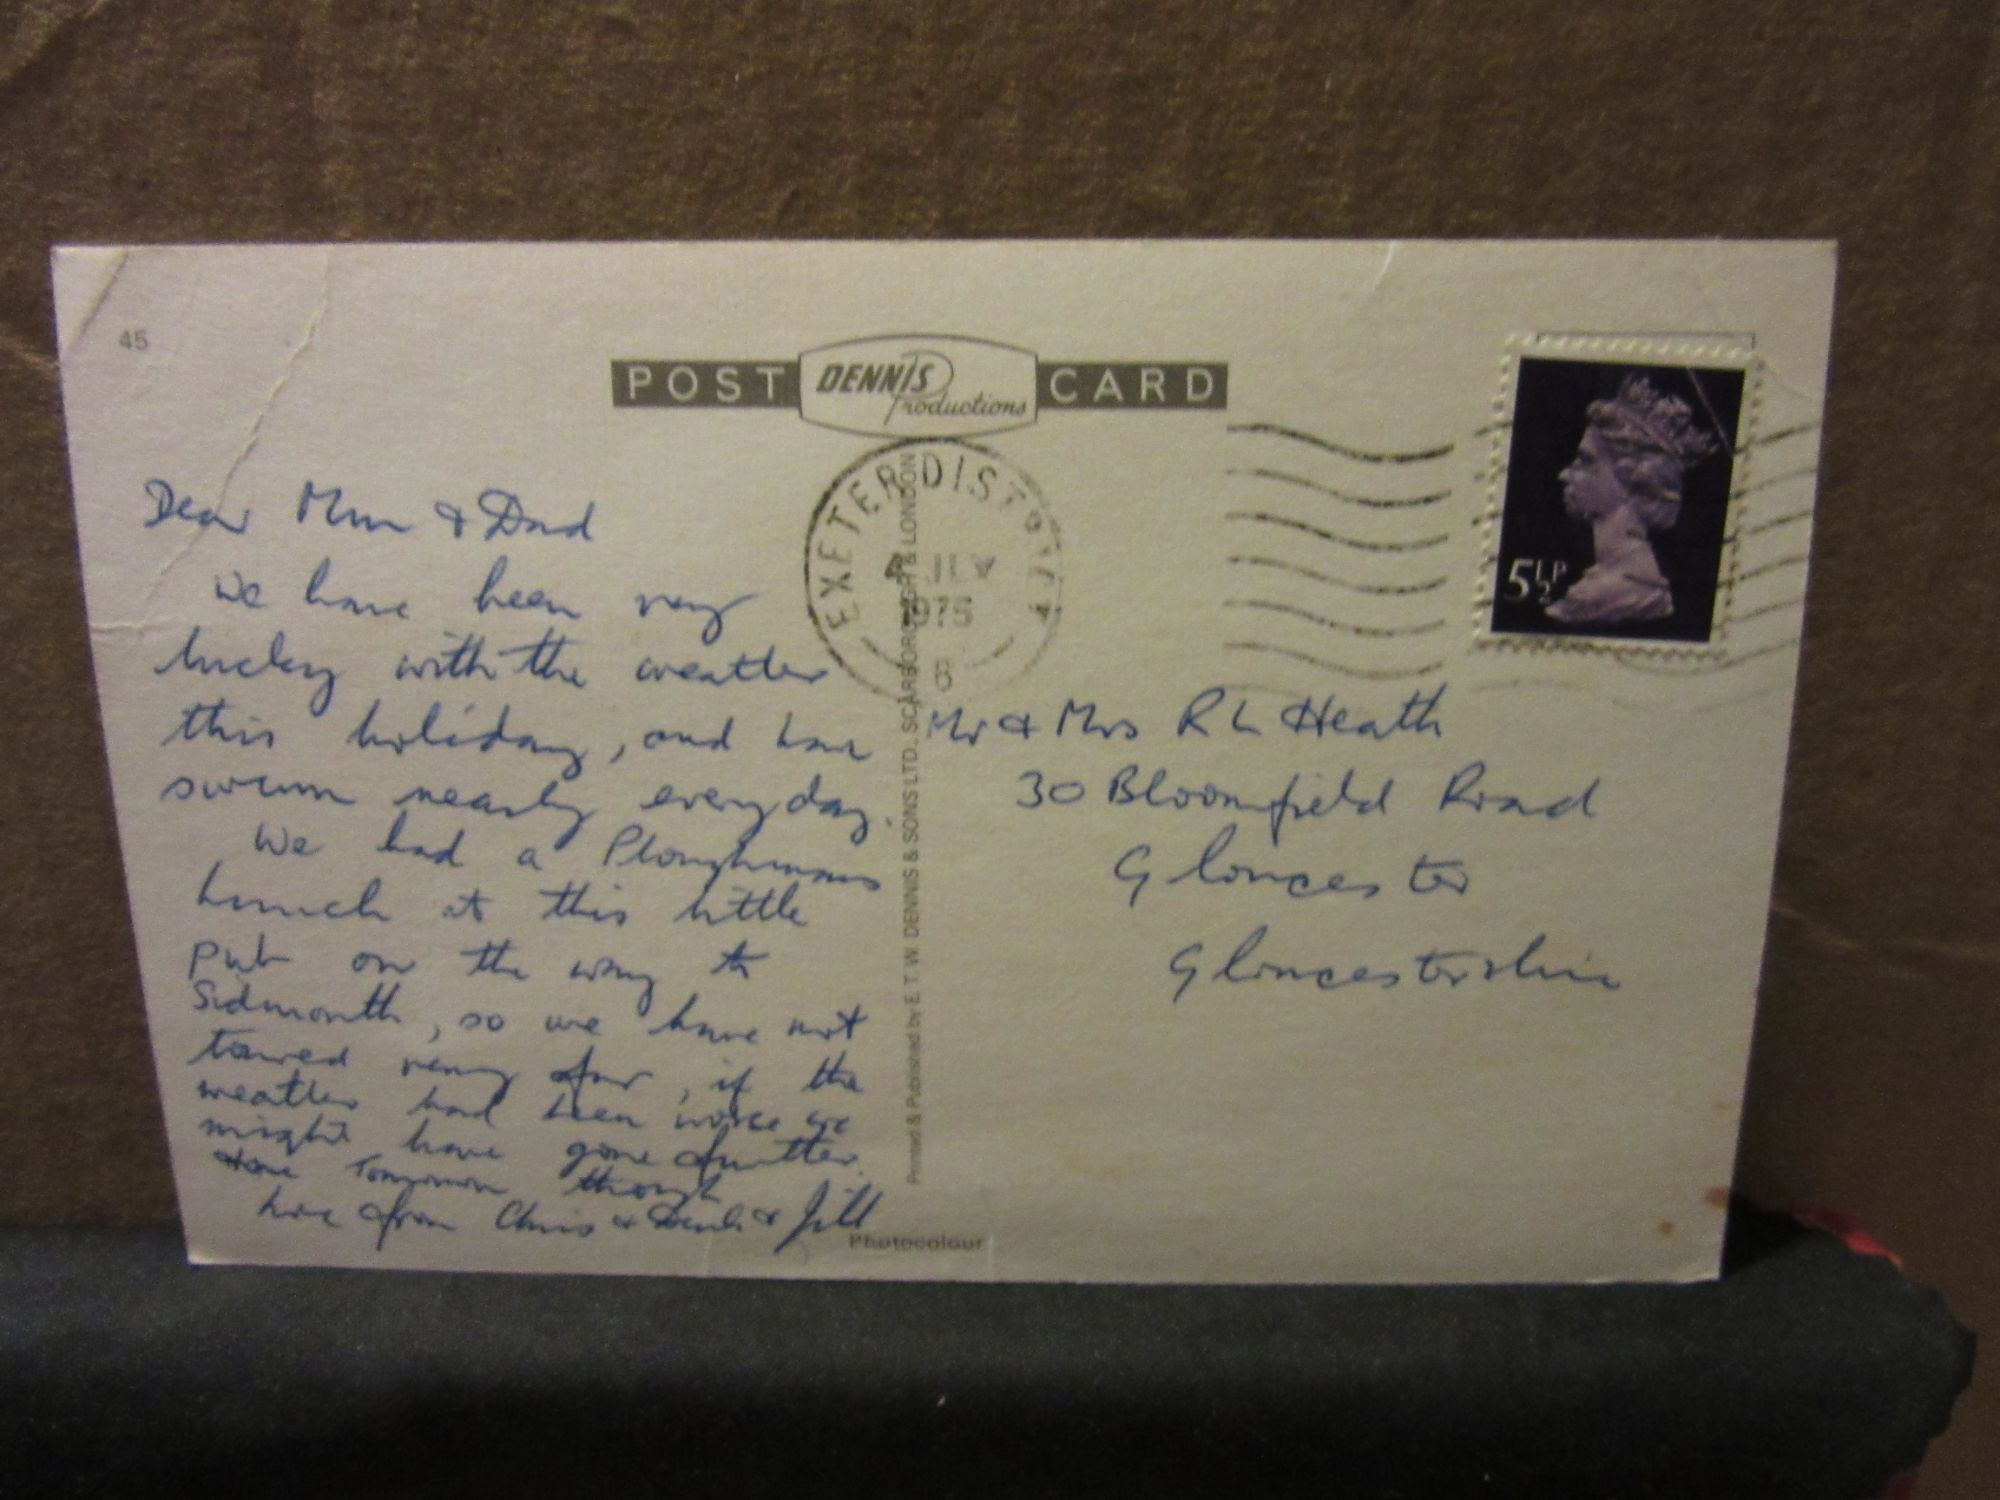 45
POST DENNIS Productions CARD
EXETER DISTRICT
975
8
5½P
Dear Mum & Dad
We have been very
lucky with the weather
this holiday, and have
swum nearly everyday.
We had a Ploughmans
lunch at this little
pub on the way to
Sidmouth, so we have not
towed very far, if the
weather had been worse we
might have gone further.
Home Tomorrow though
Love from Chris & & Jill
Mr & Mrs R L Heath
30 Bloomfield Road
Gloucester
Gloucestershire
Printed & Published by E. T. W. DENNIS & SONS LTD., SCARBOROUGH & LONDON
Photocolour